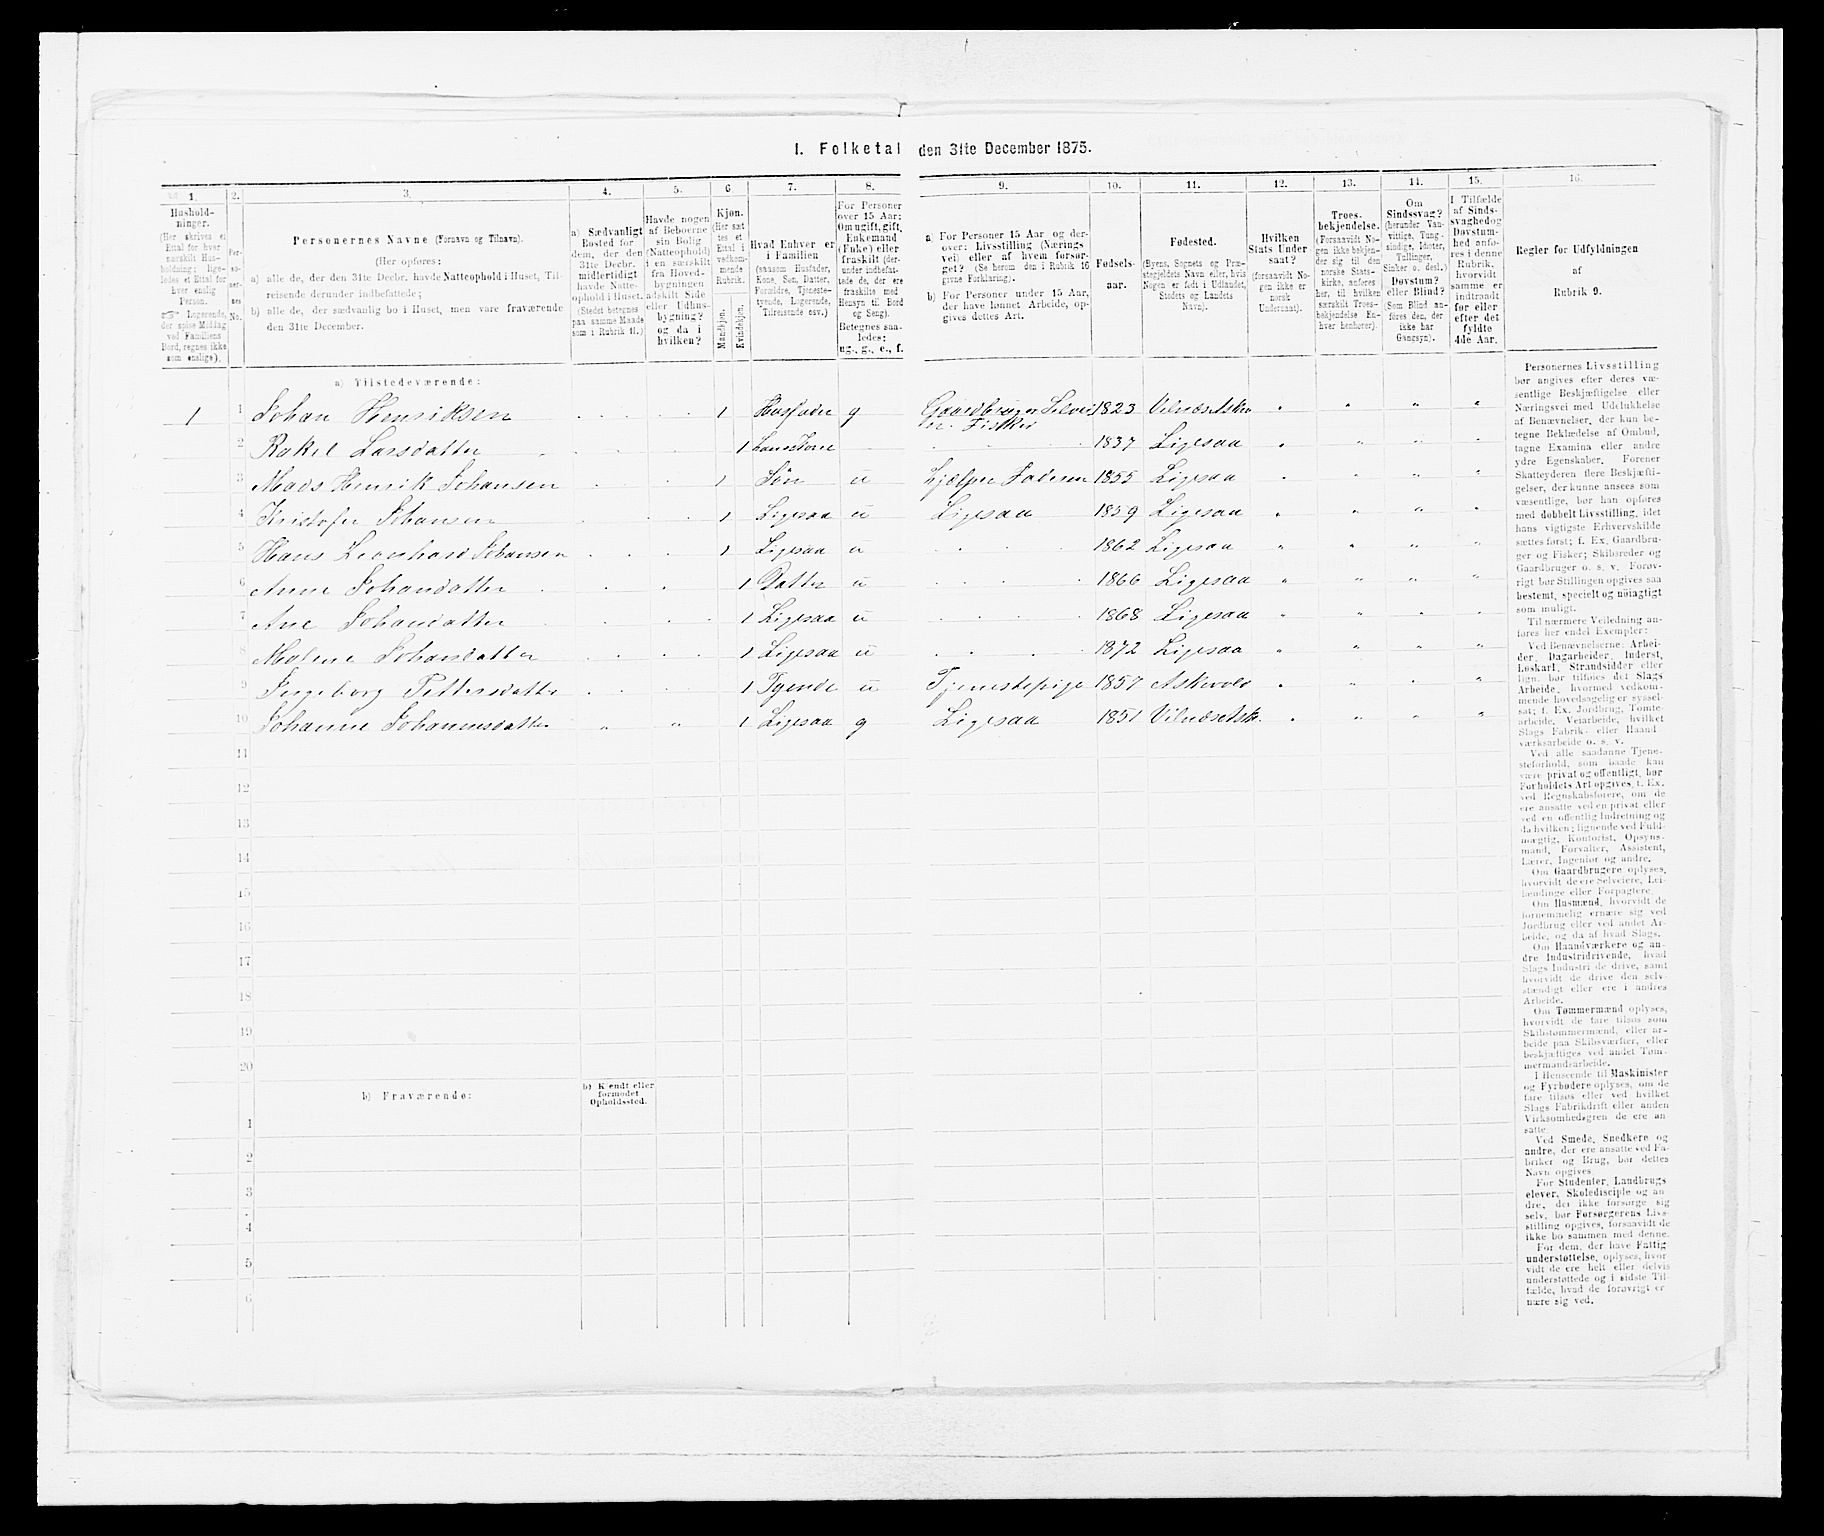 1. Folketal den 31te December 1875.
1. 2. 3. 4. 5. 6. 7. 8. 9. 10. 11. 12. 13. 14. 15. 16.
Hushold-
ninger.
(Her skrives et
Ettal for hver
særskilt Hus-
holdning; lige-
ledes et Ettal for
hver enslig
Person.
Logerende,
der spise Middag
ved Familiens
Bord, regnes ikke
som enslige).
Per-
so-
ner-
nes
No.
Personernes Navne (Fornavn og Tilnavn).
(Her opføres:
a) alle de, der den 31te Decbr. havde Natteophold i Huset, Til-
reisende derunder indbefattede;
b) alle de, der sædvanlig bo i Huset, men vare fraværende
den 31te December.
a) Sædvanligt
Bosted for
dem, der den
31te Decbr.
midlertidigt
havde Natte-
ophold i Huset.
(Stedet betegnes
paa samme Maade
som i Rubrik 11.)
Havde nogen
af Beboerne
sin Bolig
(Natteophold)
i en særskilt
fra Hoved-
bygningen
adskilt Side
eller Udhus-
bygning?
og da i
hvilken?
Kjøn.
(Her sæt
tes et
Ettal i
vedkom-
mende
Rubrik.
Mandkjøn.
Kvindekjøn.
Hvad Enhver er
i Familien
(saasom Husfader,
Kone, Søn, Datter,
Forældre, Tjeneste-
tyende, Logerende,
Tilreisende osv.)
For Personer
over 15 Aar:
Om ugift, gift,
Enkemand
(Enke) eller
fraskilt (der-
under indbefat-
tede de, der ere
fraskilte med
Hensyn til Bord
og Seng).
Betegnes saa-
ledes:
ug., g., e., f.
a) For Personer 15 Aar og der-
over: Livsstilling (Nærings
vei) eller af hvem forsør-
get? (Se herom den i Rubrik 16
givne Forklaring).
b) For Personer under 15 Aar,
der have lønnet Arbeide, op-
gives dettes Art.
Fødsels-
aar.
Fødested.
(Byens, Sognets og Præ-
stegjeldets Navn eller, hvis
Nogen er født i Udlandet,
Stedets og Landets
Navn).
Hvilken
Stats Under
saat?
(forsaavidt No-
gen ikke er
norsk
Undersaat).
Troes-
bekjendelse.
(Forsaavidt No-
gen ikke bekjen-
der sig til den
norske Stats-
kirke, anføres
her, til hvilken
særskilt Troes-
bekjendelse En-
hver henhører).
Om
Sindssvag?
(herunder Van-
vittige, Tung
sindige, Idioter,
Tullinger,
Sinker o. desl.)
Døvstum?
eller Blind?
(Som Blind an-
føres den, der
ikke har
Gangsyn).
I Tilfælde
af Sinds-
svaghed og
Døvstum-
hed anfø-
res i denne
Rubrik.
hvorvidt
samme er
indtraadt
før eller
efter det
fyldte
4de Aar.
Regler for Udfyldningen
af
Rubrik 9.
a) Tilstedeværende:
1 1 Johan Henriksen 1 Husfader g Gaardbruger Selveier 1823 Vilnæs Askv
og Fisker
2 Rakel Larsdatter 1 1837 Ligesaa
3 Mads Henrik Johansen 1 Søn u Hjælper Faderen 1855 Ligesaa
4 Kristofer Johansen 1 Ligesaa u Ligesaa 1859 Ligesaa
5 Hans Leonhard Johansen 1 Ligesaa u 1862 Ligesaa
6 Anne Johansdatter 1 Datter u 1866 Ligesaa
7 Ane Johansdatter 1 Ligesaa u 1868 Ligesaa
8 Malene Johansdatter 1 Ligesaa u 1872 Ligesaa
9 Ingeborg Pettersdatter 1 Tyende u Tjenestepige 1857 Askevold
10 Johanne Johannesdatter 1 Ligesaa g Ligesaa 1851 Vilnæs Askv.
11
12
13
14
15
16
17
18
19
20
b) Fraværende:
b) Kjendt eller
formodet
Opholdssted.
1
2
3
4
5
6
Personernes Livsstilling
bør angives efter deres væ-
sentlige Beskjæftigelse eller
Næringsvei med Udelukkelse
af Benævnelser, der kun be-
tegne Beklædelse af Ombud,
tagne Examina eller andre
ydre Egenskaber. Forener
Skatteyderen flere Beskjæfti-
gelser, der kunne ansees som
væsentlige, bør han opføres
med dobbelt Livsstilling, idet
hans vigtigste Erhvervskilde
sættes først; f. Ex. Gaardbru-
ger og Fisker; Skibsreder og
Gaardbruger o. s. v. Forøv-
rigt bør Stillingen opgives saa
bestemt, specielt og nøiagtigt
som muligt.
Til nærmere Veiledning an-
føres her endel Exempler:
Ved Benævnelserne: Arbei-
der, Dagarbeider, Inderst,
Løskarl, Strandsidder eller
lign. bør tilføies det Slags
Arbeide, hvormed vedkom-
mende hovedsagelig er syssel-
sat; f. Ex. Jordbrug, Tomte-
arbeide, Veiarbeide, hvilket
Slags Fabrik- eller Haand-
værksarbeide o. s. v.
Ved alle saadanne Tjene-
steforhold, som baade kan
være privat og offentligt, bør
Forholdets Art opgives, f. Ex.
ved Regnskabsførere, om de
ere ansatte ved en privat eller
ved en offentlig Indretning og
da hvilken; lignende ved Fuld-
mægtig, Kontorist, Opsyns-
mand, Forvalter, Assistent,
Lærer, Ingeniør og andre.
Om Gaardbrugere oplyses,
hvorvidt de ere Selveiere, Lei-
lændinge eller Forpagtere.
Om Husmænd, hvorvidt de
fornemmelig ernære sig ved
Jordbrug eller ved andet Ar-
beide, og da af hvad Slags.
Om Haandværkere og an-
dre Industridrivende, hvad
Slags Industri de drive, samt
hvorvidt de drive den selv-
stændigt eller ere i andres
Arbeide.
Om Tømmermænd oplyses,
hvorvidt de fare tilsøs som
Skibstømmermænd, eller ar-
beide paa Skibsværfter, eller
beskjæftiges ved andet Tøm-
mermandsarbeide.
I Henseende til Maskinister
og Fyrbødere oplyses, om de
fare tilsøs eller ved hvilket
Slags Fabrikdrift eller anden
Virksomhedsgren de ere an
satte.
Ved Smede, Snedkere og
andre, der ere ansatte ved Fa-
briker og Brug, bør dettes
Navn opgives.
For Studenter, Landbrugs
elever, Skoledisciple og an
dre, der ikke forsørge sig
selv, bør Forsørgerens Livs-
stilling opgives, forsaavidt de
ikke bo sammen med denne.
For dem, der have Fattig
understøttelse, oplyses, hvor
vidt de ere helt eller delvis
understøttede og i sidste Til
fælde, hvad de forøvrigt er
nære sig ved.